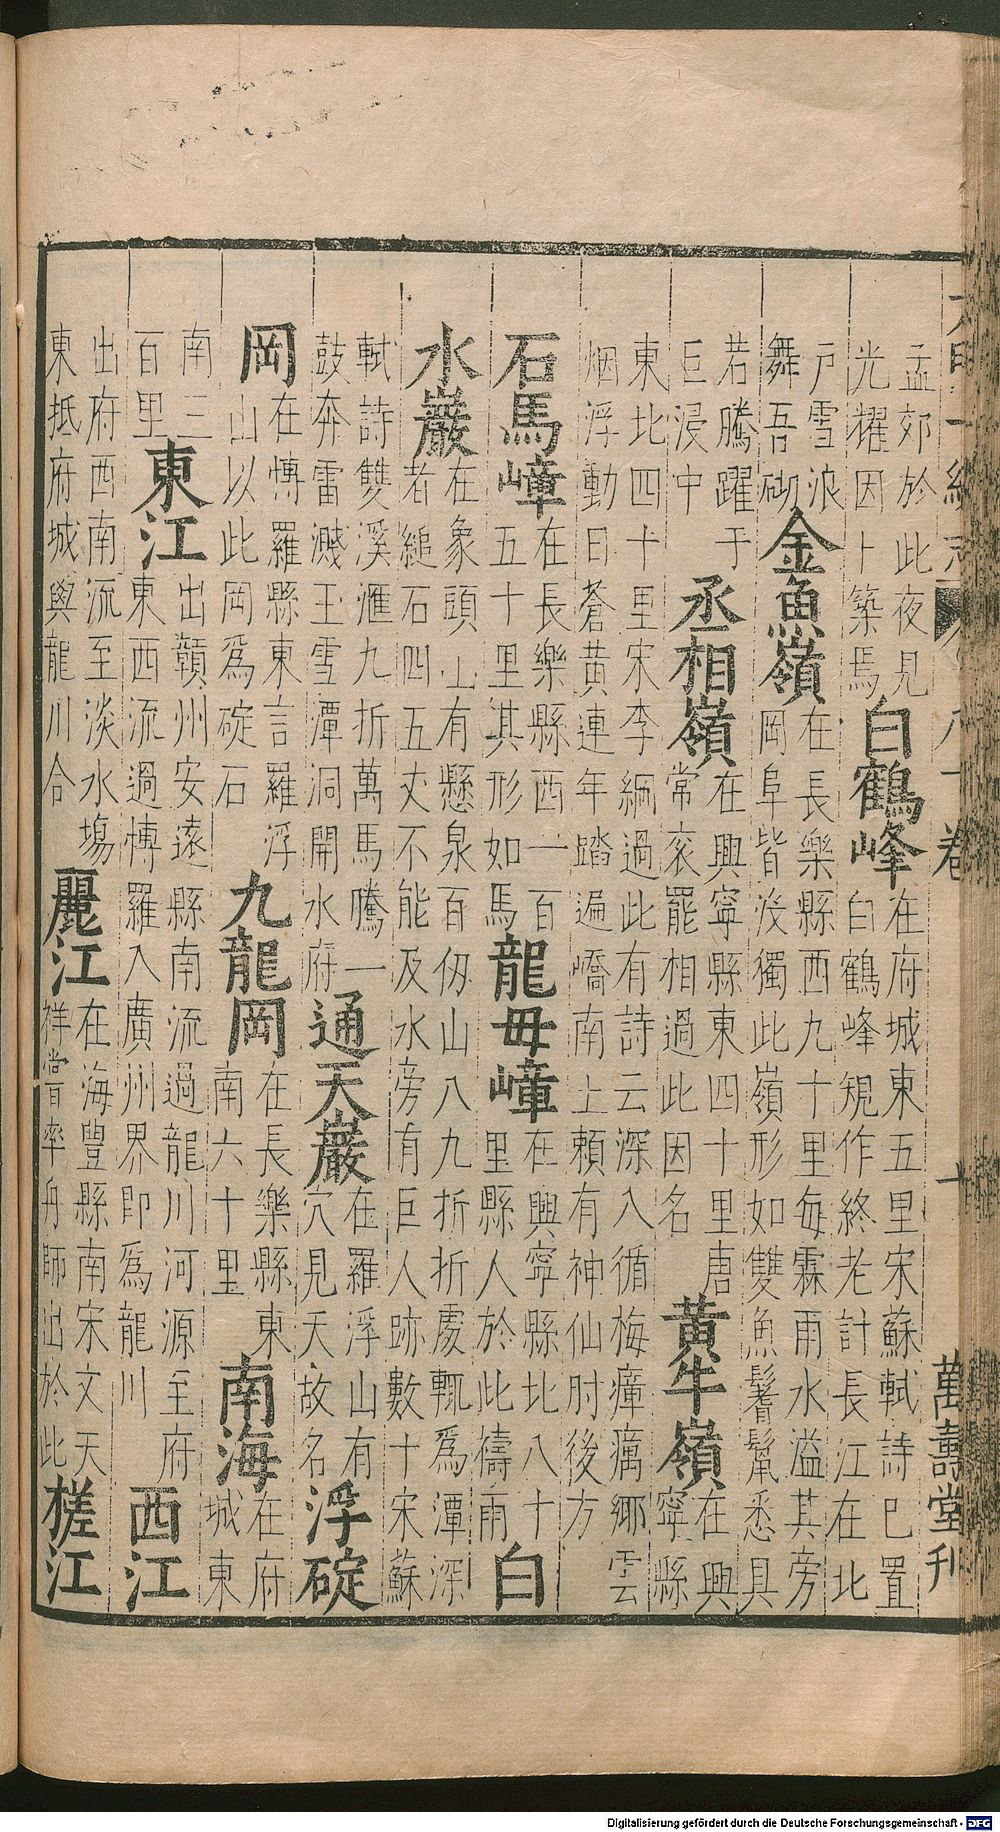 大明一統志 八十卷 十 萬壽堂刊
孟郊於此夜見
光耀因卜築焉
白鶴峰
在府城東五里宋蘇軾詩已置
白鶴峰規作終老計長江在北
戶雪浪
舞吾砌
金魚嶺
在長樂縣西九十里每霖雨水溢其旁
岡阜皆没獨此嶺形如雙魚鬐鬣悉具
若騰躍于
巨浸中
丞相嶺
在興寧縣東四十里唐
常衮罷相過此因名
黄牛嶺
在興
寧縣
東北四十里宋李綱過此有詩云深入循梅瘴癘鄉雲
烟浮動日蒼黄連年踏遍嶠南土賴有神仙肘後方
石馬嶂
在長樂縣西一百
五十里其形如馬
龍母嶂
在興寧縣北八十
里縣人於此禱雨
白
水巖
在象頭山有懸泉百仭山八九折折處輒為潭深
者縋石四五丈不能及水旁有巨人跡數十宋蘇
軾詩雙溪滙九折萬馬騰一
鼓奔雷濺玉雪潭洞開水府
通天巖
在羅浮山有
穴見天故名
浮碇
岡
在愽羅縣東言羅浮
山以此岡為碇石
九龍岡
在長樂縣東
南六十里
南海
在府
城東
南三
百里
東江
出贑州安遠縣南流過龍川河源至府
東西流過愽羅入廣州界即為龍川
西江
出府西南流至淡水塲
東抵府城與龍川合
麗江
在海豐縣南宋文天
祥嘗率舟師出於此
槎江
Digitalisierung gefördert durch die Deutsche Forschungsgemeinschaft - DFG